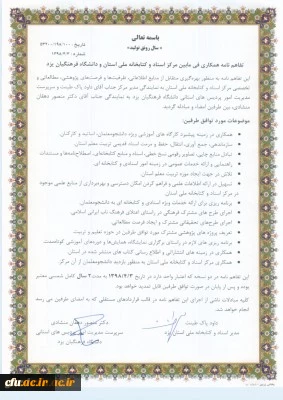 باسمه تعالی
«سال رونق تولید»
تاریخ:
شماره:
تفاهم نامه همکاری فی مابین مرکز اسناد و کتابخانه ملی استان و دانشگاه فرهنگیان یزد
این تفاهم نامه به منظور بهره‌گیری متقابل از منابع اطلاعاتی، ظرفیت‌ها و فرصت‌های پژوهشی، مطالعاتی و
تخصصی مرکز اسناد و کتابخانه ملی استان به نمایندگی مدیر مرکز جناب آقای داود پاک طینت و سرپرست
مدیریت امور پردیس های استانی دانشگاه فرهنگیان یزد به نمایندگی جناب آقای دکتر منصور دهقان
منشادی، بین طرفین امضاء و مبادله گردید.
موضوعات مورد توافق طرفین:
همکاری در زمینه پیشبرد کارگاه های آموزشی ویژه دانشجومعلمان، اساتید و کارکنان.
سازماندهی، جمع آوری، انتقال، حفظ و مرمت اسناد قدیمی تربیت معلم استان.
تبادل منابع چاپی، تصاویر رقومی نسخ خطی، اسناد و منابع کتابخانه‌ای، اصطلاح‌نامه‌ها و مستندات
راهنمایی و ارائه خدمات عمومی در زمینه امور اسنادی و کتابخانه ای.
تلاش در جهت ایجاد موزه تربیت معلم استان.
تسهیل در ارائه اطلاعات علمی و فراهم کردن امکان دسترسی و بهره‌برداری از منابع علمی موجود
در مرکز اسناد و کتابخانه ملی استان.
برنامه ریزی برای ارائه خدمات ویژه اسنادی و کتابخانه ای به دانشجومعلمان.
اجرای طرح های مشترک فرهنگی در راستای اعتلای فرهنگ ناب ایرانی اسلامی.
اجرای طرح‌های تحقیقاتی مشترک و ایجاد فرصت مطالعاتی.
تعریف پروژه های پژوهشی مشترک مورد توافق طرفین در حوزه تعلیم و تربیت.
برنامه ریزی های لازم در راستای برگزاری نمایشگاه، همایش‌ها و دوره‌های آموزشی کوتاه‌مدت
همکاری در زمینه های انتشاراتی و اطلاع رسانی کتاب های منتشر شده در استان.
همکاری مرکز اسناد و کتابخانه ملی استان به منظور بازدید دانشجومعلمان از آن مرکز
این تفاهم نامه در دو نسخه که اعتبار واحد دارد در تاریخ ۱۳۹۸/۴/۳ به مدت ۲ سال کامل شمسی معتبر
بوده و پس از پایان در صورت توافق طرفین قابل تمدید خواهد بود.
کلیه مبادلات ناشی از اجرای این تفاهم نامه در قالب قراردادهای مستقلی که به امضای طرفین می رسد
انجام خواهد شد.
داود پاک طینت
مدیر اسناد و کتابخانه ملی استان یزد
دکتر منصور دهقان منشادی
سرپرست مدیریت امور پردیس های استانی
دانشگاه فرهنگیان یزد
cfu.ac.ir